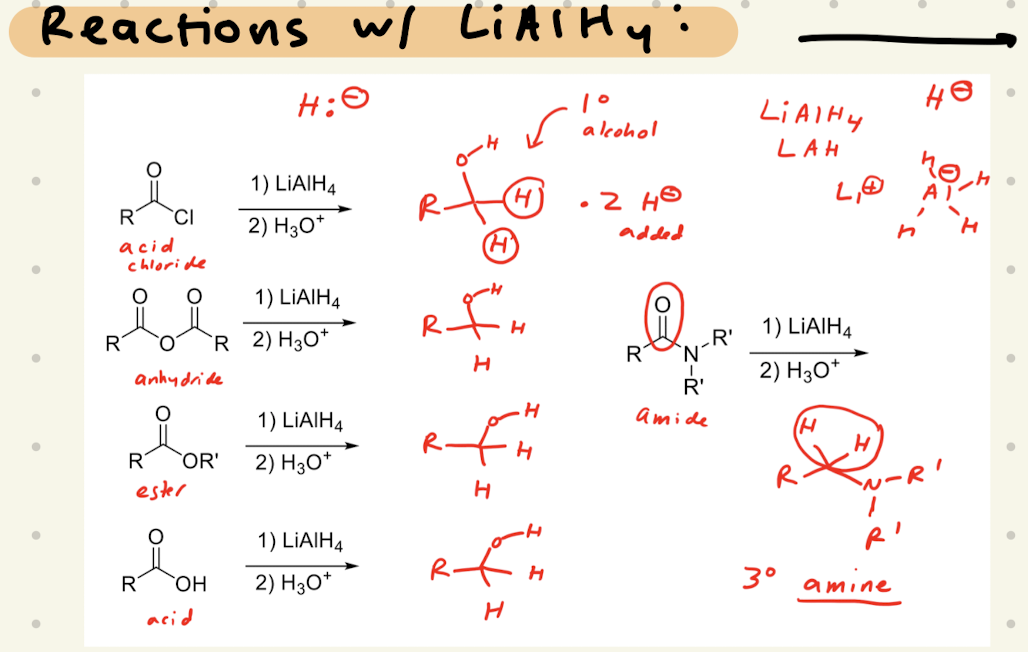 Reactions w/ LiAlH4:
H:⊖
1°
alcohol
LiAlH4
LAH
H⊖
Li⊕
H
⊖
Al
H
H
H
O
R
Cl
acid
chloride
1) LiAlH4
2) H3O+
O
H
R
H
H
• 2 H⊖
added
O
O
R
O
R
anhydride
1) LiAlH4
2) H3O+
O
H
R
H
H
O
R
N
R'
R'
amide
1) LiAlH4
2) H3O+
O
R
OR'
ester
1) LiAlH4
2) H3O+
O
H
R
H
H
H
H
R
N
R'
R'
3° amine
O
R
OH
acid
1) LiAlH4
2) H3O+
O
H
R
H
H